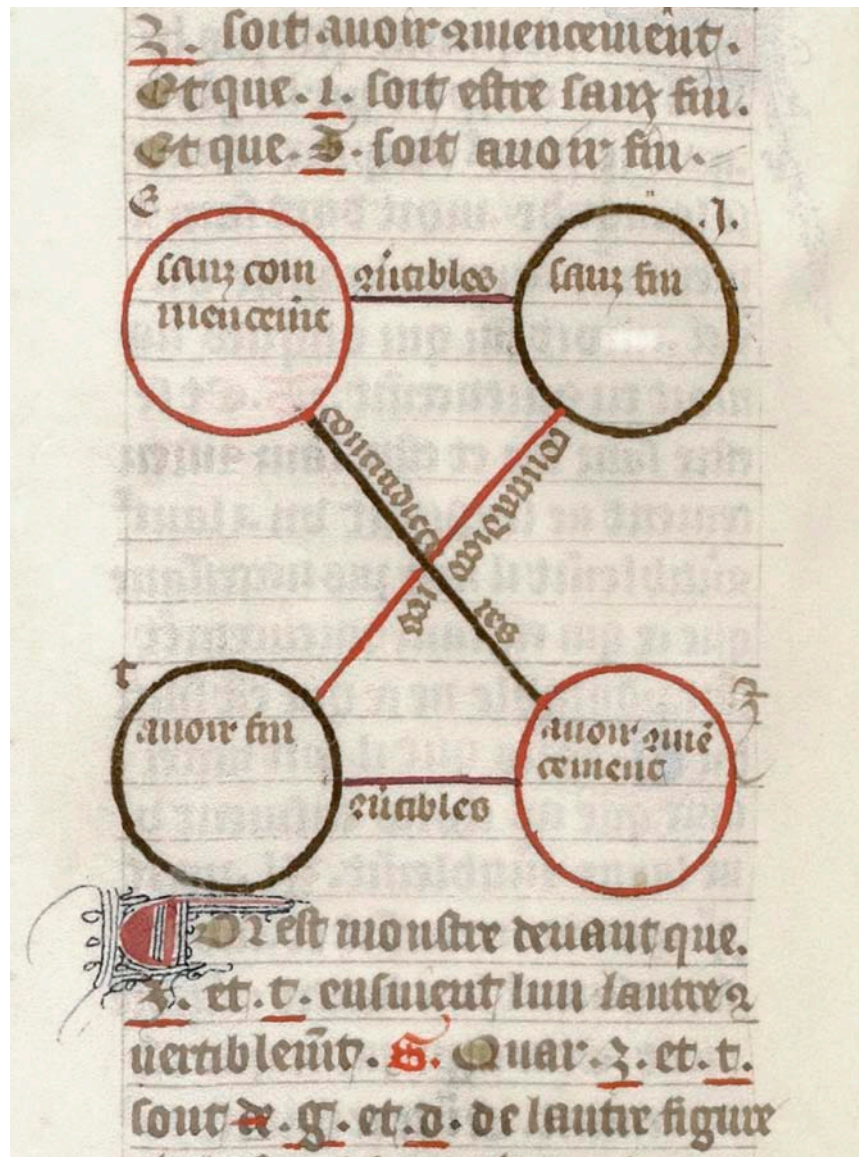 Z. soit avoir ꝯmencement.
Et que .i. soit estre sanz fin.
Et que .T. soit avoir fin.
E
.J.
sanz com
mencemt̄
ꝯv̄tibles
sanz fin
contradictoires
contradictoires
t
Z
avoir fin
avoir ꝯmē
cement
ꝯv̄tibles
Or est monstre devant que.
Z. et .t. ensuient lun lautre ꝯ
vertiblem̄t. S. Quar .z. et .t.
sont de .g. et .d. de lautre figure